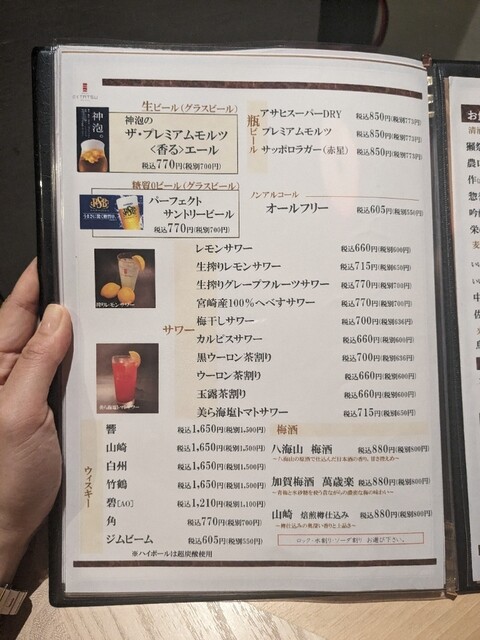 生ビール(グラスビール)
神泡。
神泡の
ザ・プレミアムモルツ
〈香る〉エール
税込770円(税別700円)
糖質0ビール(グラスビール)
PSB
パーフェクト
サントリービール
税込770円(税別700円)
瓶ビール
アサヒスーパーDRY 税込850円(税別773円)
プレミアムモルツ 税込850円(税別773円)
サッポロラガー(赤星) 税込850円(税別773円)
ノンアルコール
オールフリー 税込605円(税別550円)
サワー
搾りレモンサワー
美ら海塩トマトサワー
レモンサワー 税込660円(税別600円)
生搾りレモンサワー 税込715円(税別650円)
生搾りグレープフルーツサワー 税込770円(税別700円)
宮崎産100%へべすサワー 税込770円(税別700円)
梅干しサワー 税込700円(税別636円)
カルピスサワー 税込660円(税別600円)
黒ウーロン茶割り 税込700円(税別636円)
ウーロン茶割り 税込660円(税別600円)
玉露茶割り 税込660円(税別600円)
美ら海塩トマトサワー 税込715円(税別650円)
ウィスキー
響 税込1,650円(税別1,500円)
山崎 税込1,650円(税別1,500円)
白州 税込1,650円(税別1,500円)
竹鶴 税込1,650円(税別1,500円)
碧[AO] 税込1,210円(税別1,100円)
角 税込770円(税別700円)
ジムビーム 税込605円(税別550円)
※ハイボールは超炭酸使用
梅酒
八海山 梅酒 税込880円(税別800円)
~八海山の原酒で仕込んだ日本酒の香り、甘さ控えめ~
加賀梅酒 萬歳楽 税込880円(税別800円)
~青梅と氷砂糖を使う昔ながらの濃密な梅の味わい~
山崎 焙煎樽仕込み 税込880円(税別800円)
~樽仕込みの奥深い香りと上品さ~
ロック・水割り・ソーダ割り お選び下さい。